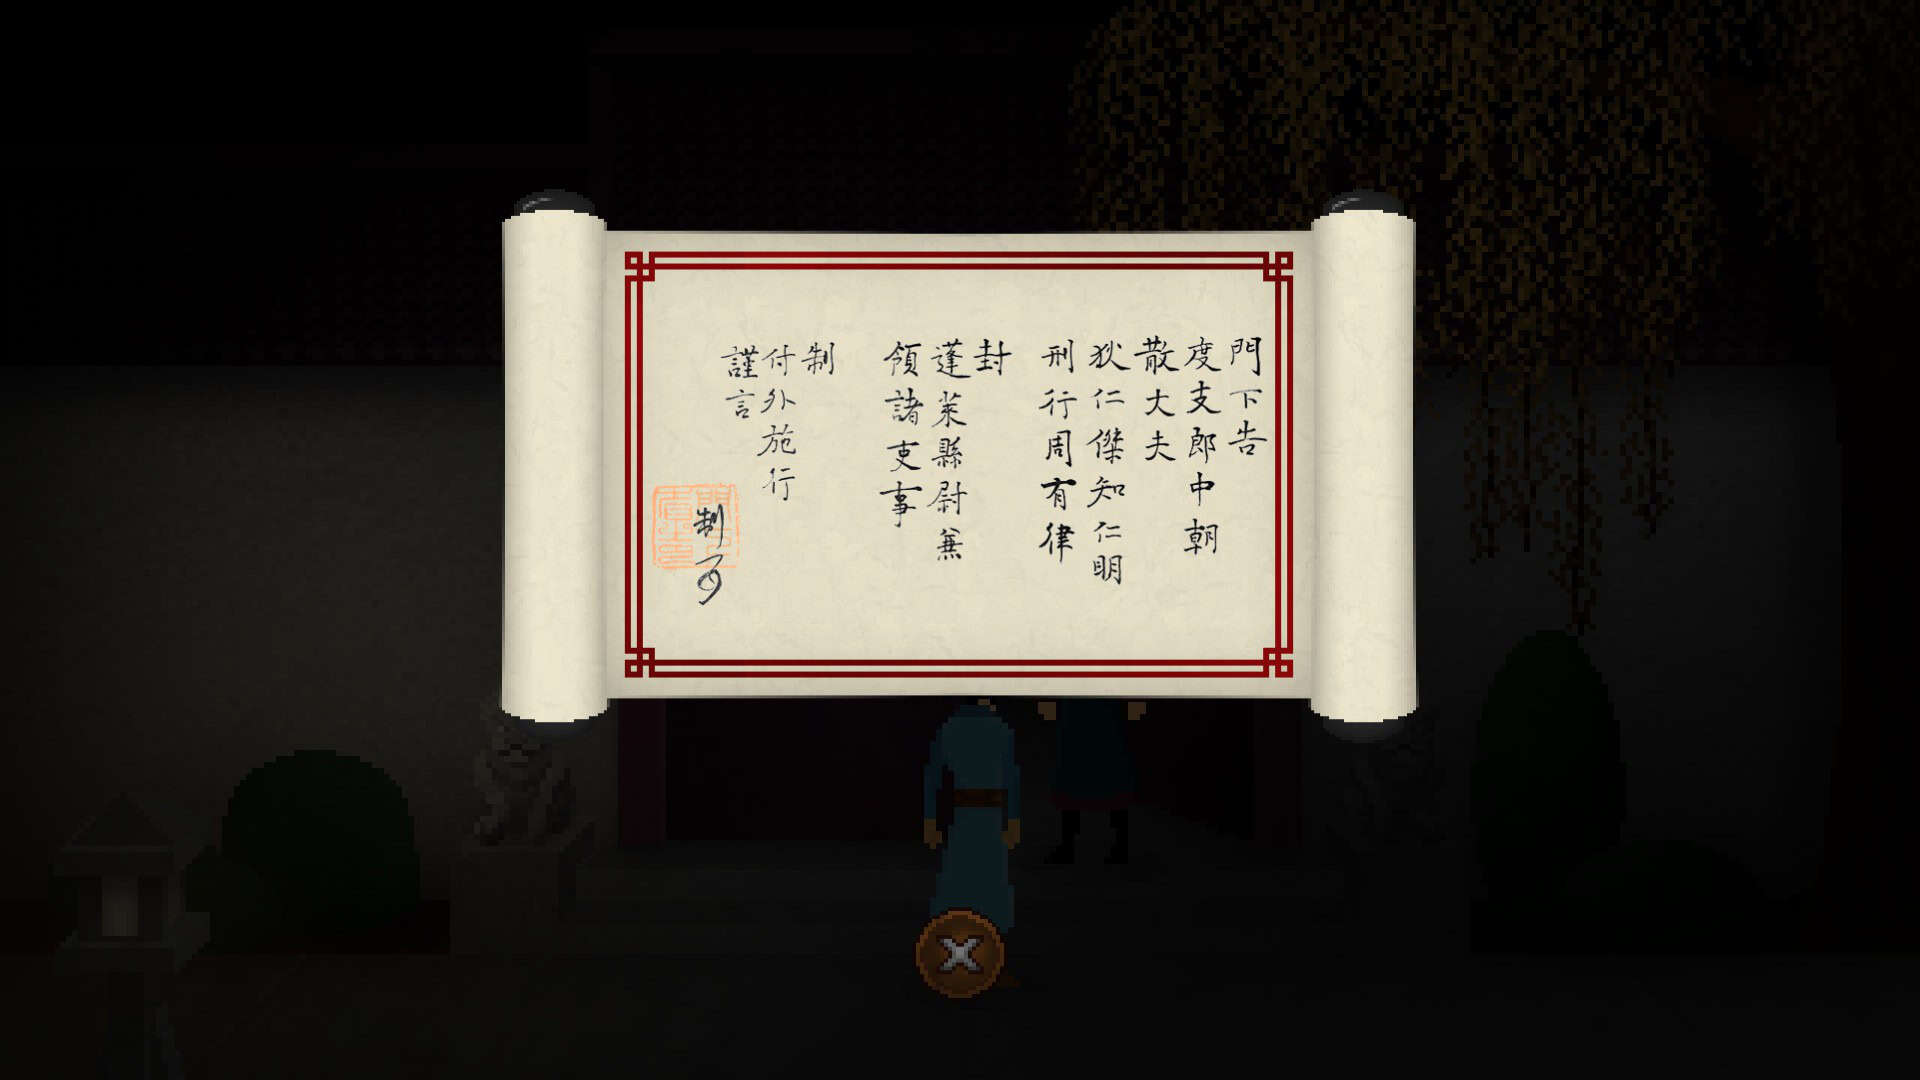 門下告
度支郎中朝
散大夫
狄仁傑知仁明
刑行周有律
封
蓬萊縣尉蕪
領諸吏事
制
付外施行
謹言
制可